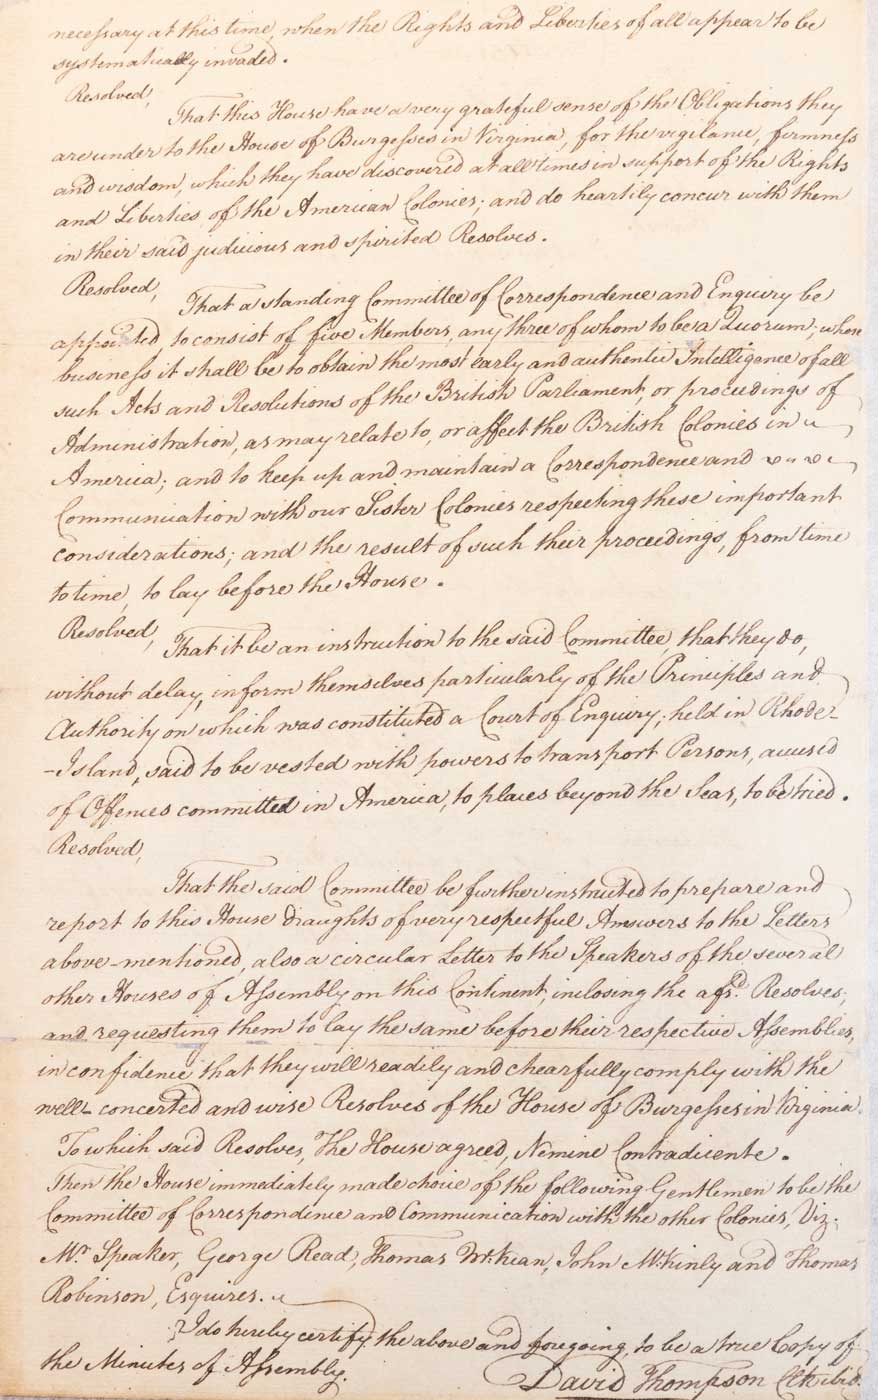 necessary at this time, when the Rights and Liberties of all appear to be
systematically invaded.
Resolved,
That this House have a very grateful sense of the Obligations they
are under to the House of Burgesses in Virginia, for the vigilance, firmness
and wisdom, which they have discovered at all times in support of the Rights
and Liberties of the American Colonies; and do heartily concur with them
in their said judicious and spirited Resolves.
Resolved,
That a standing Committee of Correspondence and Enquiry be
appointed, to consist of five Members, any three of whom to be a Quorum; whose
business it shall be to obtain the most early and authentic Intelligence of all
such Acts and Resolutions of the British Parliament, or proceedings of
Administration, as may relate to, or affect the British Colonies in
America; and to keep up and maintain a Correspondence and
Communication with our Sister Colonies respecting these important
considerations; and the result of such their proceedings, from time
to time, to lay before the House.
Resolved,
That it be an instruction to the said Committee, that they do,
without delay, inform themselves particularly of the Principles and
Authority on which was constituted a Court of Enquiry, held in Rhode-
-Island, said to be vested with powers to transport Persons, accused
of Offences committed in America, to places beyond the Seas, to be tried.
Resolved,
That the said Committee be further instructed to prepare and
report to this House draughts of very respectful Answers to the Letters
above-mentioned, also a circular Letter to the Speakers of the several
other Houses of Assembly on this Continent, inclosing the afsd. Resolves;
and requesting them to lay the same before their respective Assemblies,
in confidence that they will readily and chearfully comply with the
well-concerted and wise Resolves of the House of Burgesses in Virginia.
To which said Resolves, The House agreed, Nemine Contradicente.
Then the House immediately made choice of the following Gentlemen to be the
Committee of Correspondence and Communication with the other Colonies, Viz.
Mr. Speaker, George Read, Thomas McKean, John McKinly and Thomas
Robinson, Esquires.
I do hereby certify the above and foregoing, to be a true Copy of
the Minutes of Assembly.
David Thompson Clk ibid.